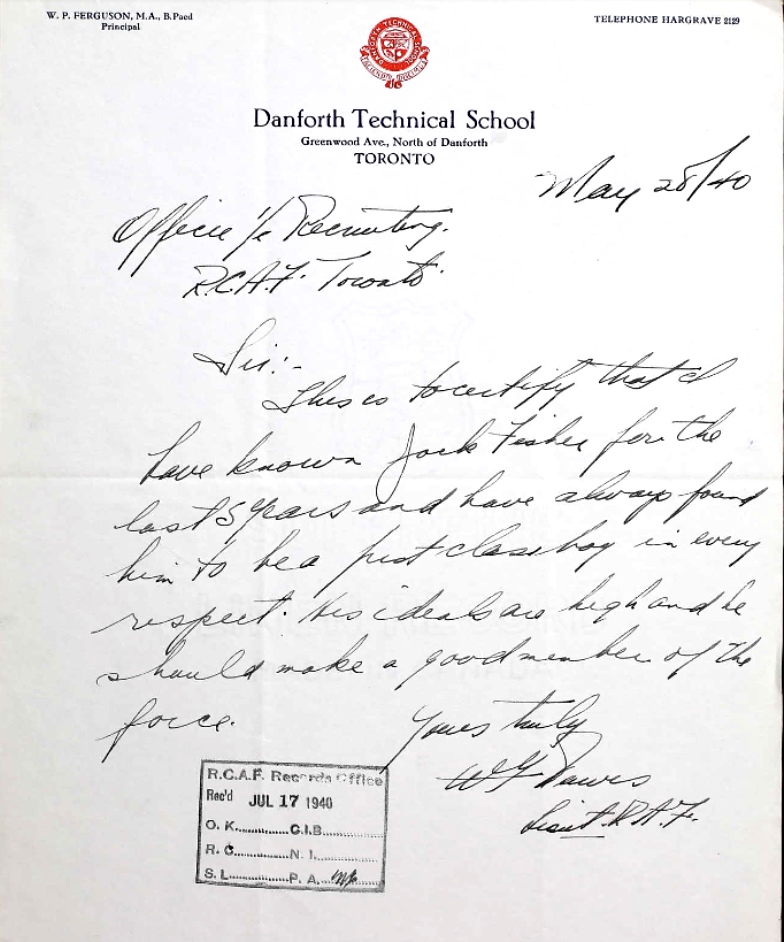 W. P. FERGUSON, M.A., B.Paed
Principal
TELEPHONE HARGRAVE 2129
DANFORTH TECHNICAL SCHOOL
Danforth Technical School
Greenwood Ave., North of Danforth
TORONTO
May 28/40
Officer i/c Recruiting.
R.C.A.F. Toronto.
Sir:-
This is to certify that I
have known Jack Fisher for the
last 5 years and have always found
him to be a first class boy in every
respect. His ideals are high and he
should make a good member of the
force.
Yours truly
Lieut. R.A.F.
R.C.A.F. Records Office
Rec'd JUL 17 1940
O. K. C.I.B.
R. C. N. I.
S. L. P. A.